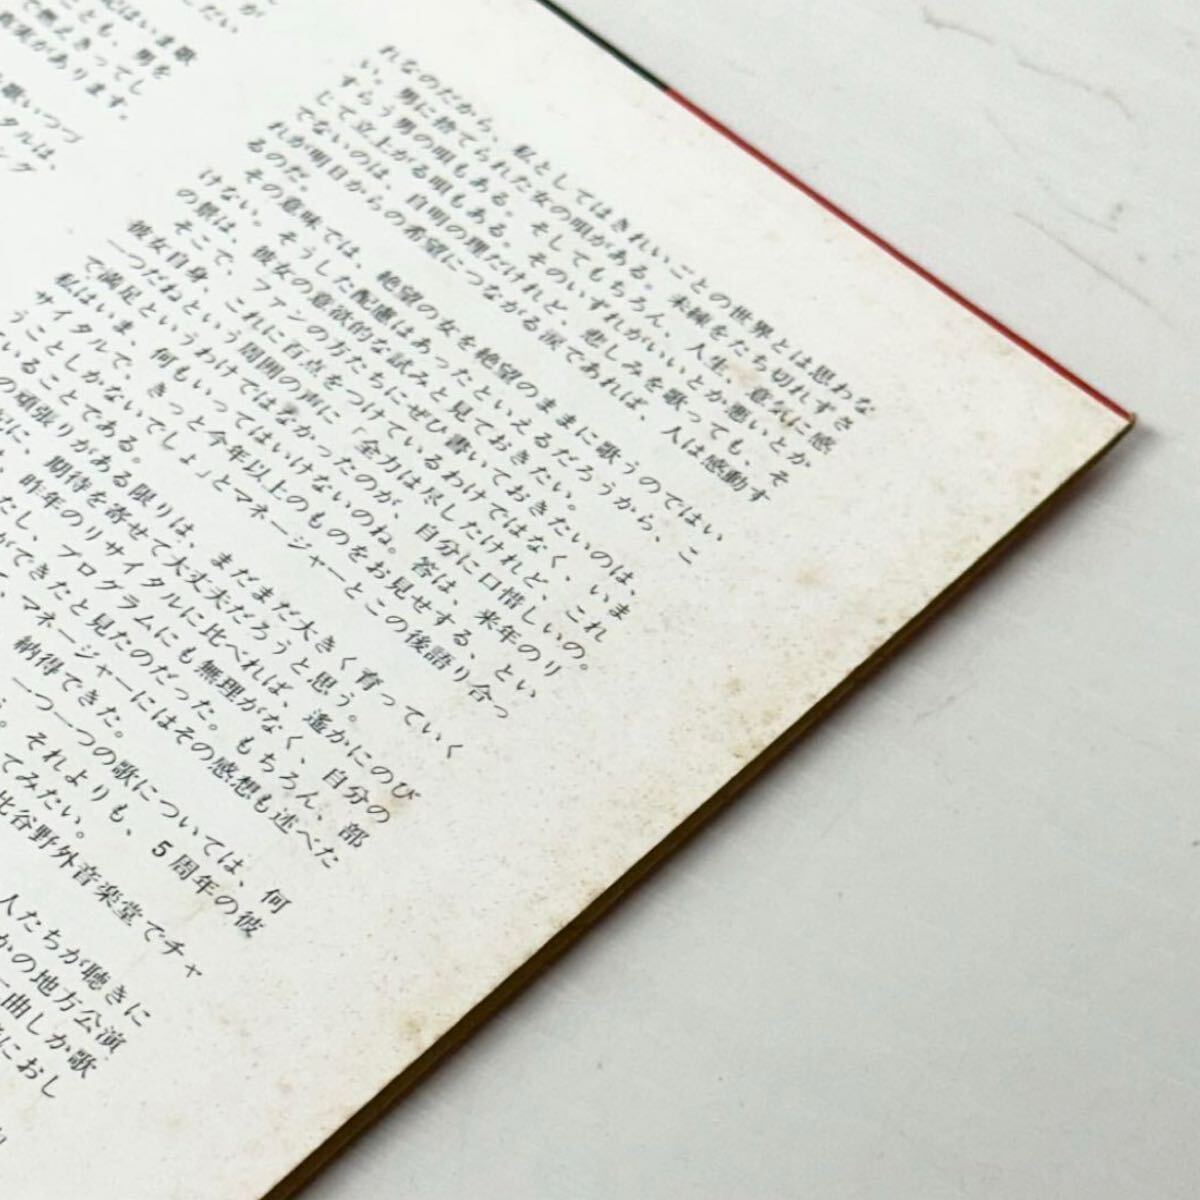 が
したい、
はいま歌
ことも、男を
で燃えきってし
真実があります。
歌いつつ
タルは、
ング
れなのだから、私としてはきれいごとの世界とは思わな
い。男に捨てられた女の唄がある。未練をたち切れずさ
すらう男の唄もある。そしてもちろん、人生、意気に感
して立上がる唄もある。そのいずれがいいとか悪いとか
でないのは、自明の理だけれど、悲しみを歌っても、そ
れが明日からの希望につながる涙であれば、人は感動す
るのだ。
その意味では、絶望の女を絶望のままに歌うのではい
けない。そうした配慮はあったといえるだろうから、こ
の盤は、彼女の意欲的な試みと見ておきたい。
そこで、ファンの方たちにぜひ書いておきたいのは、いま
彼女自身、これに百点をつけているわけではなく、これ
一つだねという周囲の声に「全力は尽したけれど、
で満足というわけではなかったのが、自分に口惜しいの。
私はいま、何もいってはいけないのね。答は、来年のリ
サイタルで、きっと今年以上のものをお見せする、とい
うことしかないでしょ」とマネージャーとこの後語り合っ
ていることである。
の頑張りがある限りは、まだまだ大きく育っていく
期待を寄せて大丈夫だろうと思う。
昨年のリサイタルに比べれば、遙かにのび
たし、プログラムにも無理がなく、自分の
ができたと見たのだった。もちろん、部
マネージャーにはその感想も述べた
納得できた。
一つ一つの歌については、何
それよりも、5周年の彼
てみたい。
比谷野外音楽堂でチャ
人たちが聴きに
かの地方公演
曲しか歌
におし